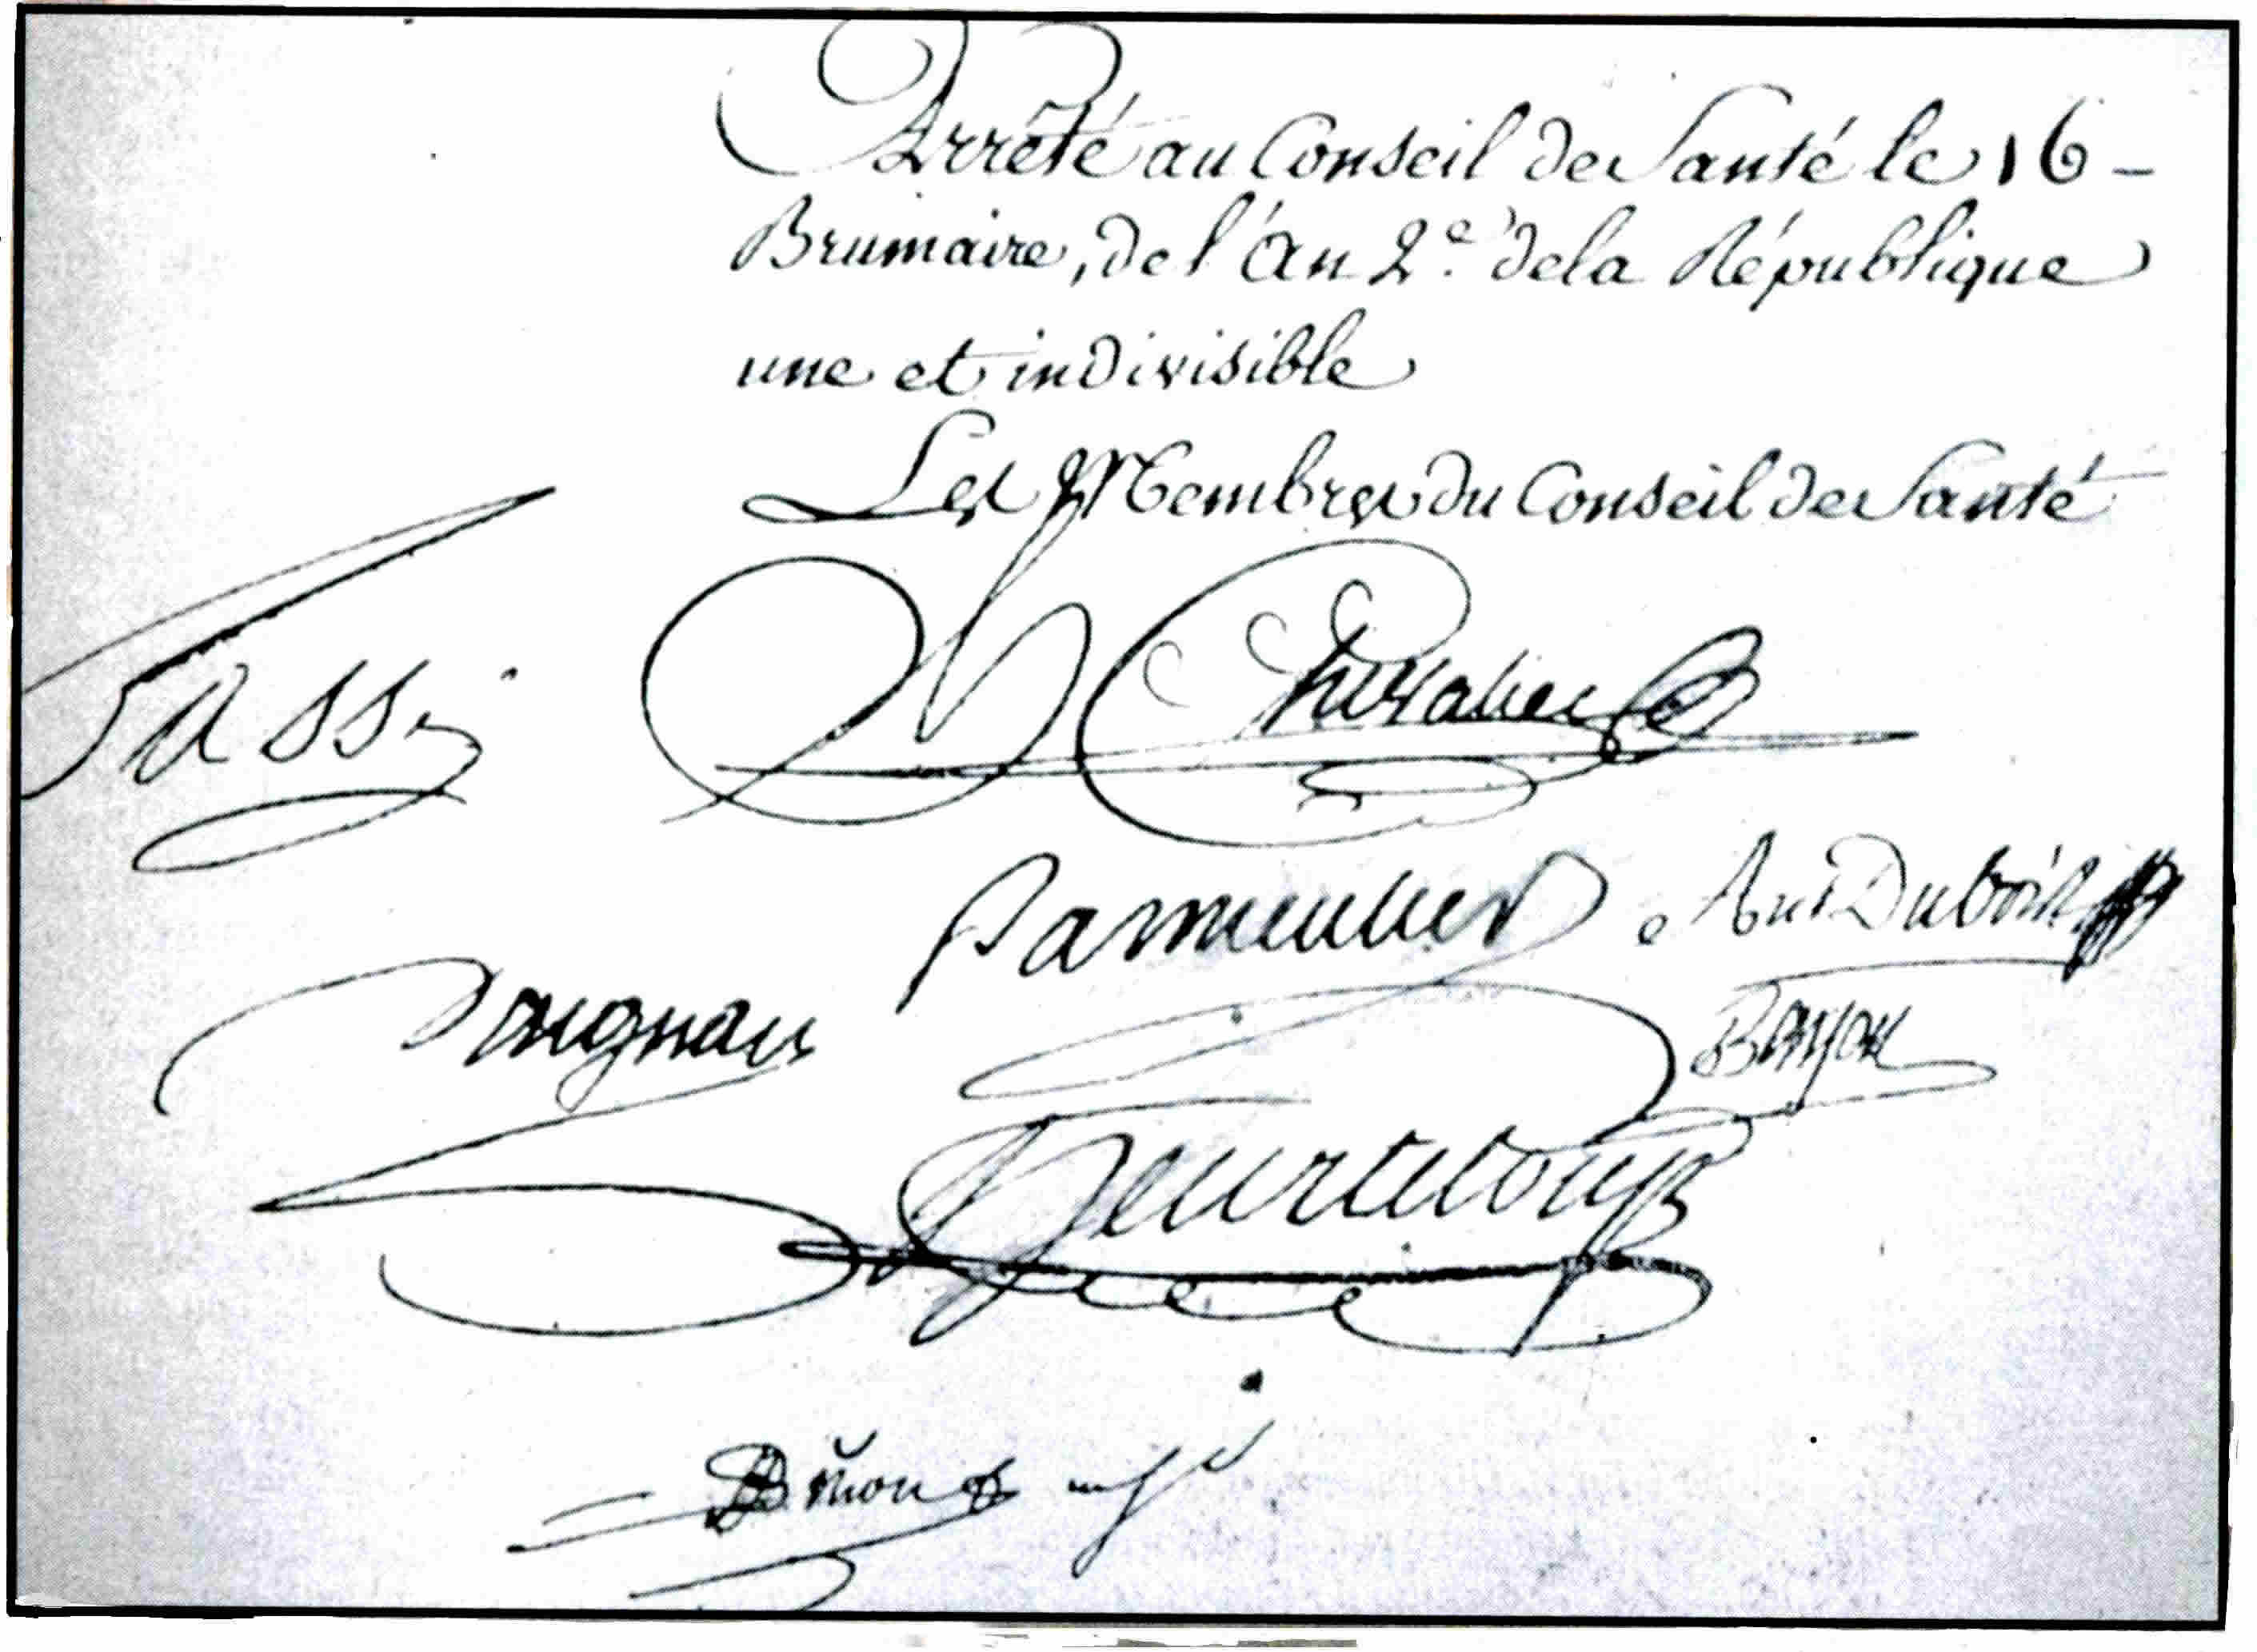 Arrêté au Conseil de Santé le 16 -
Brumaire, de l'an 2e. de la République
une et indivisible
Les Membres du Conseil de Santé
Chevalier
Parmentier Ant Dubois
Daignan Bayen
Heurteloup